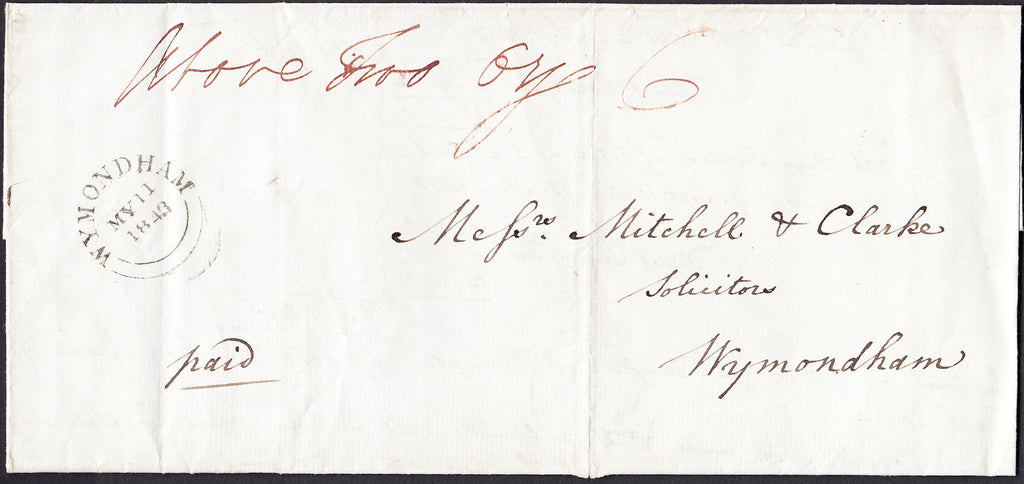 Above Two Ozs 6
WYMONDHAM
MY 11
1843
Messrs. Mitchell & Clarke
Solicitors
Wymondham
paid